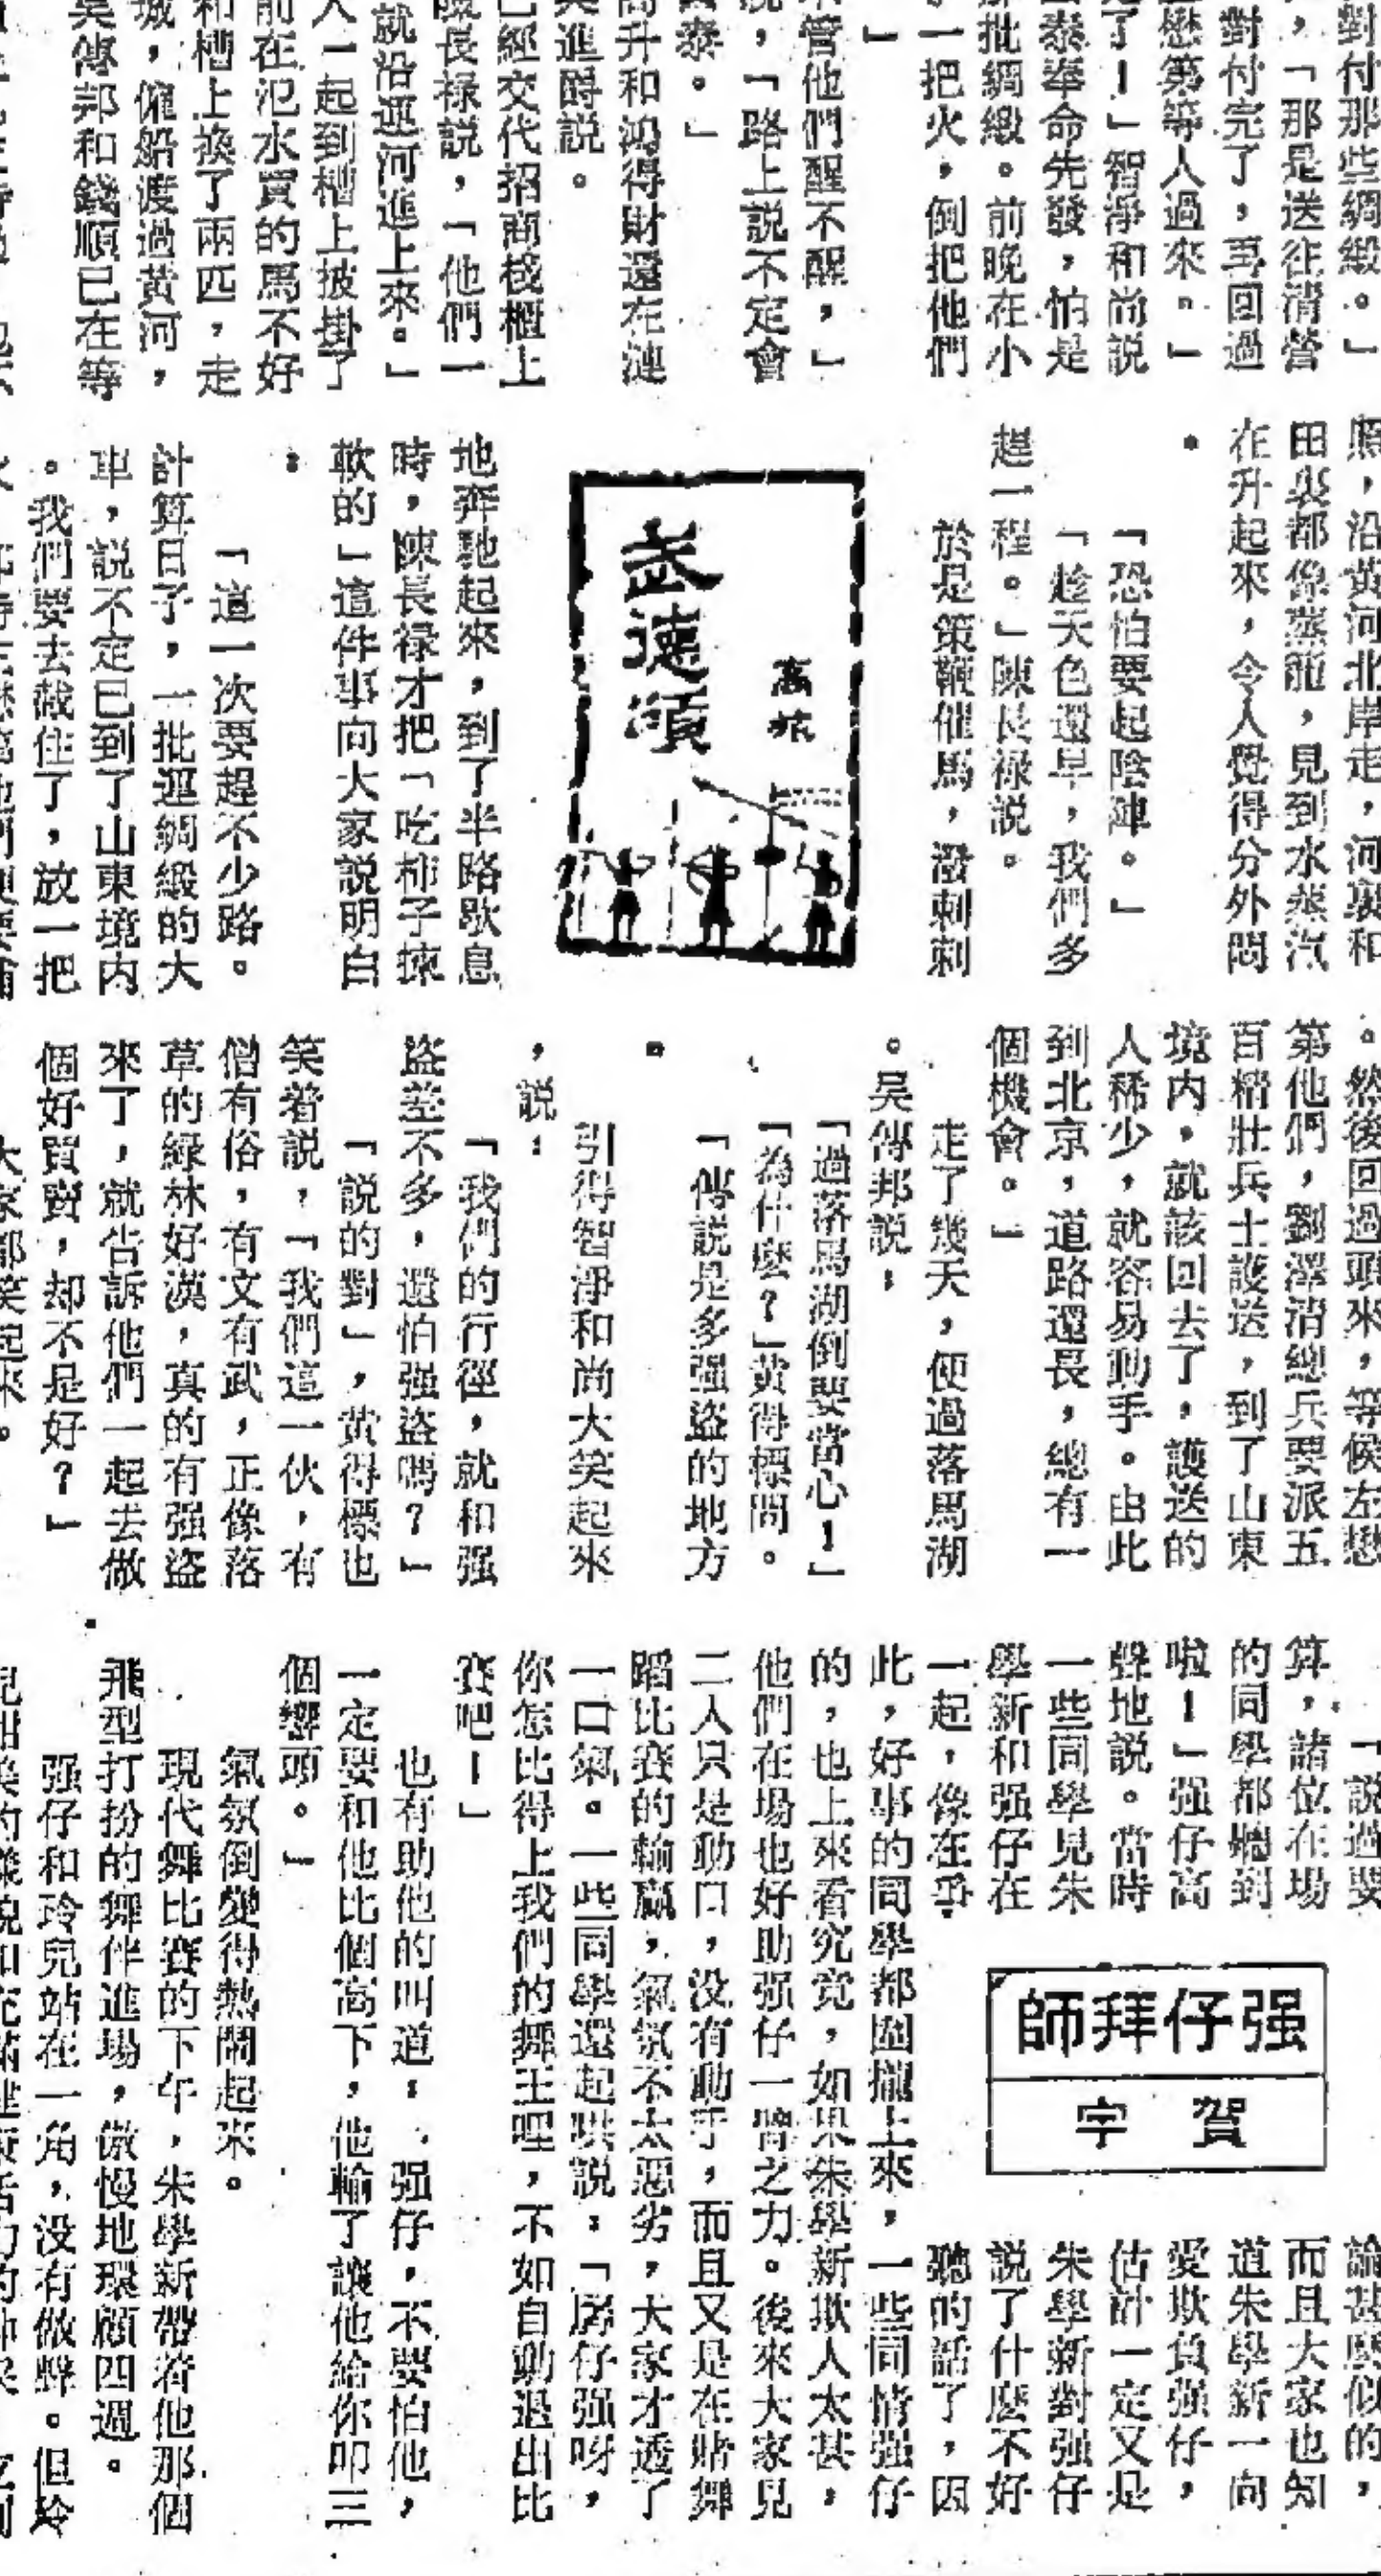 對付那些綢緞。」
，「那是送往清營
對付完了，再回過
懋第等人過來。」
了！」智淨和尚説
泰奉命先發，怕是
批綢緞。前晚在小
一把火，倒把他們
」
管他們醒不醒，」
，「路上説不定會
泰。」
高升和鴻得財還在漣
進爵説。
已經交代招商棧櫃上
長祿説，「他們一
就沿運河進上來。」
人一起到槽上披掛了
前在氾水買的馬不好
和槽上換了兩匹，走
城，僱船渡過黃河，
吳傳邦和錢順已在等
照，沿黃河北岸走，河裏和
田裏都像蒸籠，見到水蒸汽
在升起來，令人覺得分外悶
。
「恐怕要起陰陣。」
「趁天色還早，我們多
趕一程。」陳長祿説。
於是策鞭催馬，潑剌剌
武德頌
高
地奔馳起來，到了半路歇息
時，陳長祿才把「吃柿子揀
軟的」這件事向大家説明白
：
「這一次要趕不少路。
計算日子，一批運綢緞的大
車，説不定已到了山東境内
。我們要去截住了，放一把
。然後回過頭來，等候左懋
第他們，劉澤清總兵要派五
百精壯兵士護送，到了山東
境内，就該回去了，護送的
人稀少，就容易動手。由此
到北京，道路還長，總有一
個機會。」
走了幾天，便過落馬湖
。吳傳邦説：
「過落馬湖倒要當心！」
「為什麽？」黃得標問。
「傳説是多强盜的地方
。
引得智淨和尚大笑起來
，説：
「我們的行徑，就和强
盜差不多，還怕强盜嗎？」
「説的對」，黃得標也
笑着説，「我們這一伙，有
僧有俗，有文有武，正像落
草的綠林好漢，真的有强盜
來了，就告訴他們一起去做
個好買賣，却不是好？」
大家都笑起來。
「説過要
算，諸位在場
的同學都聽到
啦！」强仔高
聲地説。當時
一些同學見朱
學新和强仔在
一起，像在爭
强仔拜師
賀宇
論甚麽似的，
而且大家也知
道朱學新一向
愛欺負强仔，
估計一定又是
朱學新對强仔
説了什麽不好
聽的話了，因
此，好事的同學都圍攏上來，一些同情强仔
的，也上來看究竟，如果朱學新欺人太甚，
他們在場也好助强仔一臂之力。後來大家見
二人只是動口，没有動手，而且又是在賭舞
蹈比賽的輸贏，氣氛不太惡劣，大家才透了
一口氣。一些同學還起哄説：「孱仔强呀，
你怎比得上我們的舞王哩，不如自動退出比
賽吧！」
也有助他的叫道：「强仔，不要怕他，
一定要和他比個高下，他輸了讓他給你叩三
個響頭。」
氣氛倒變得熱鬧起來。
現代舞比賽的下午，朱學新帶着他那個
飛型打扮的舞伴進場，傲慢地環顧四週。
强仔和玲兒站在一角，没有做聲。但玲